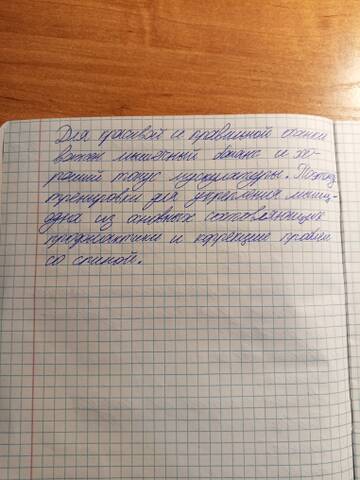 Для красивой и правильной осанки
важен мышечный баланс и хо-
роший тонус мускулатуры. Поэтому
тренировки для укрепления мышц-
одна из главных составляющих
профилактики и коррекции проблем
со спиной.